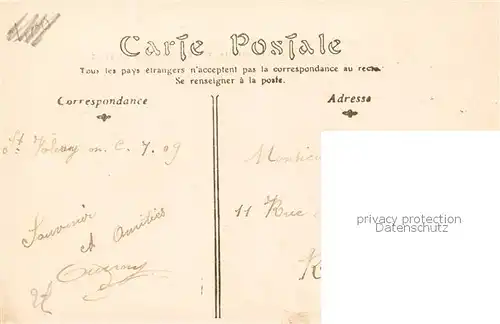 Carte Postale
Tous les pays étrangers n'acceptent pas la correspondance au recto
Se renseigner à la poste.
Correspondance
Adresse
St Valery en C. 7.09
Souvenir
et Amitiés
11 Rue
privacy protection
Datenschutz